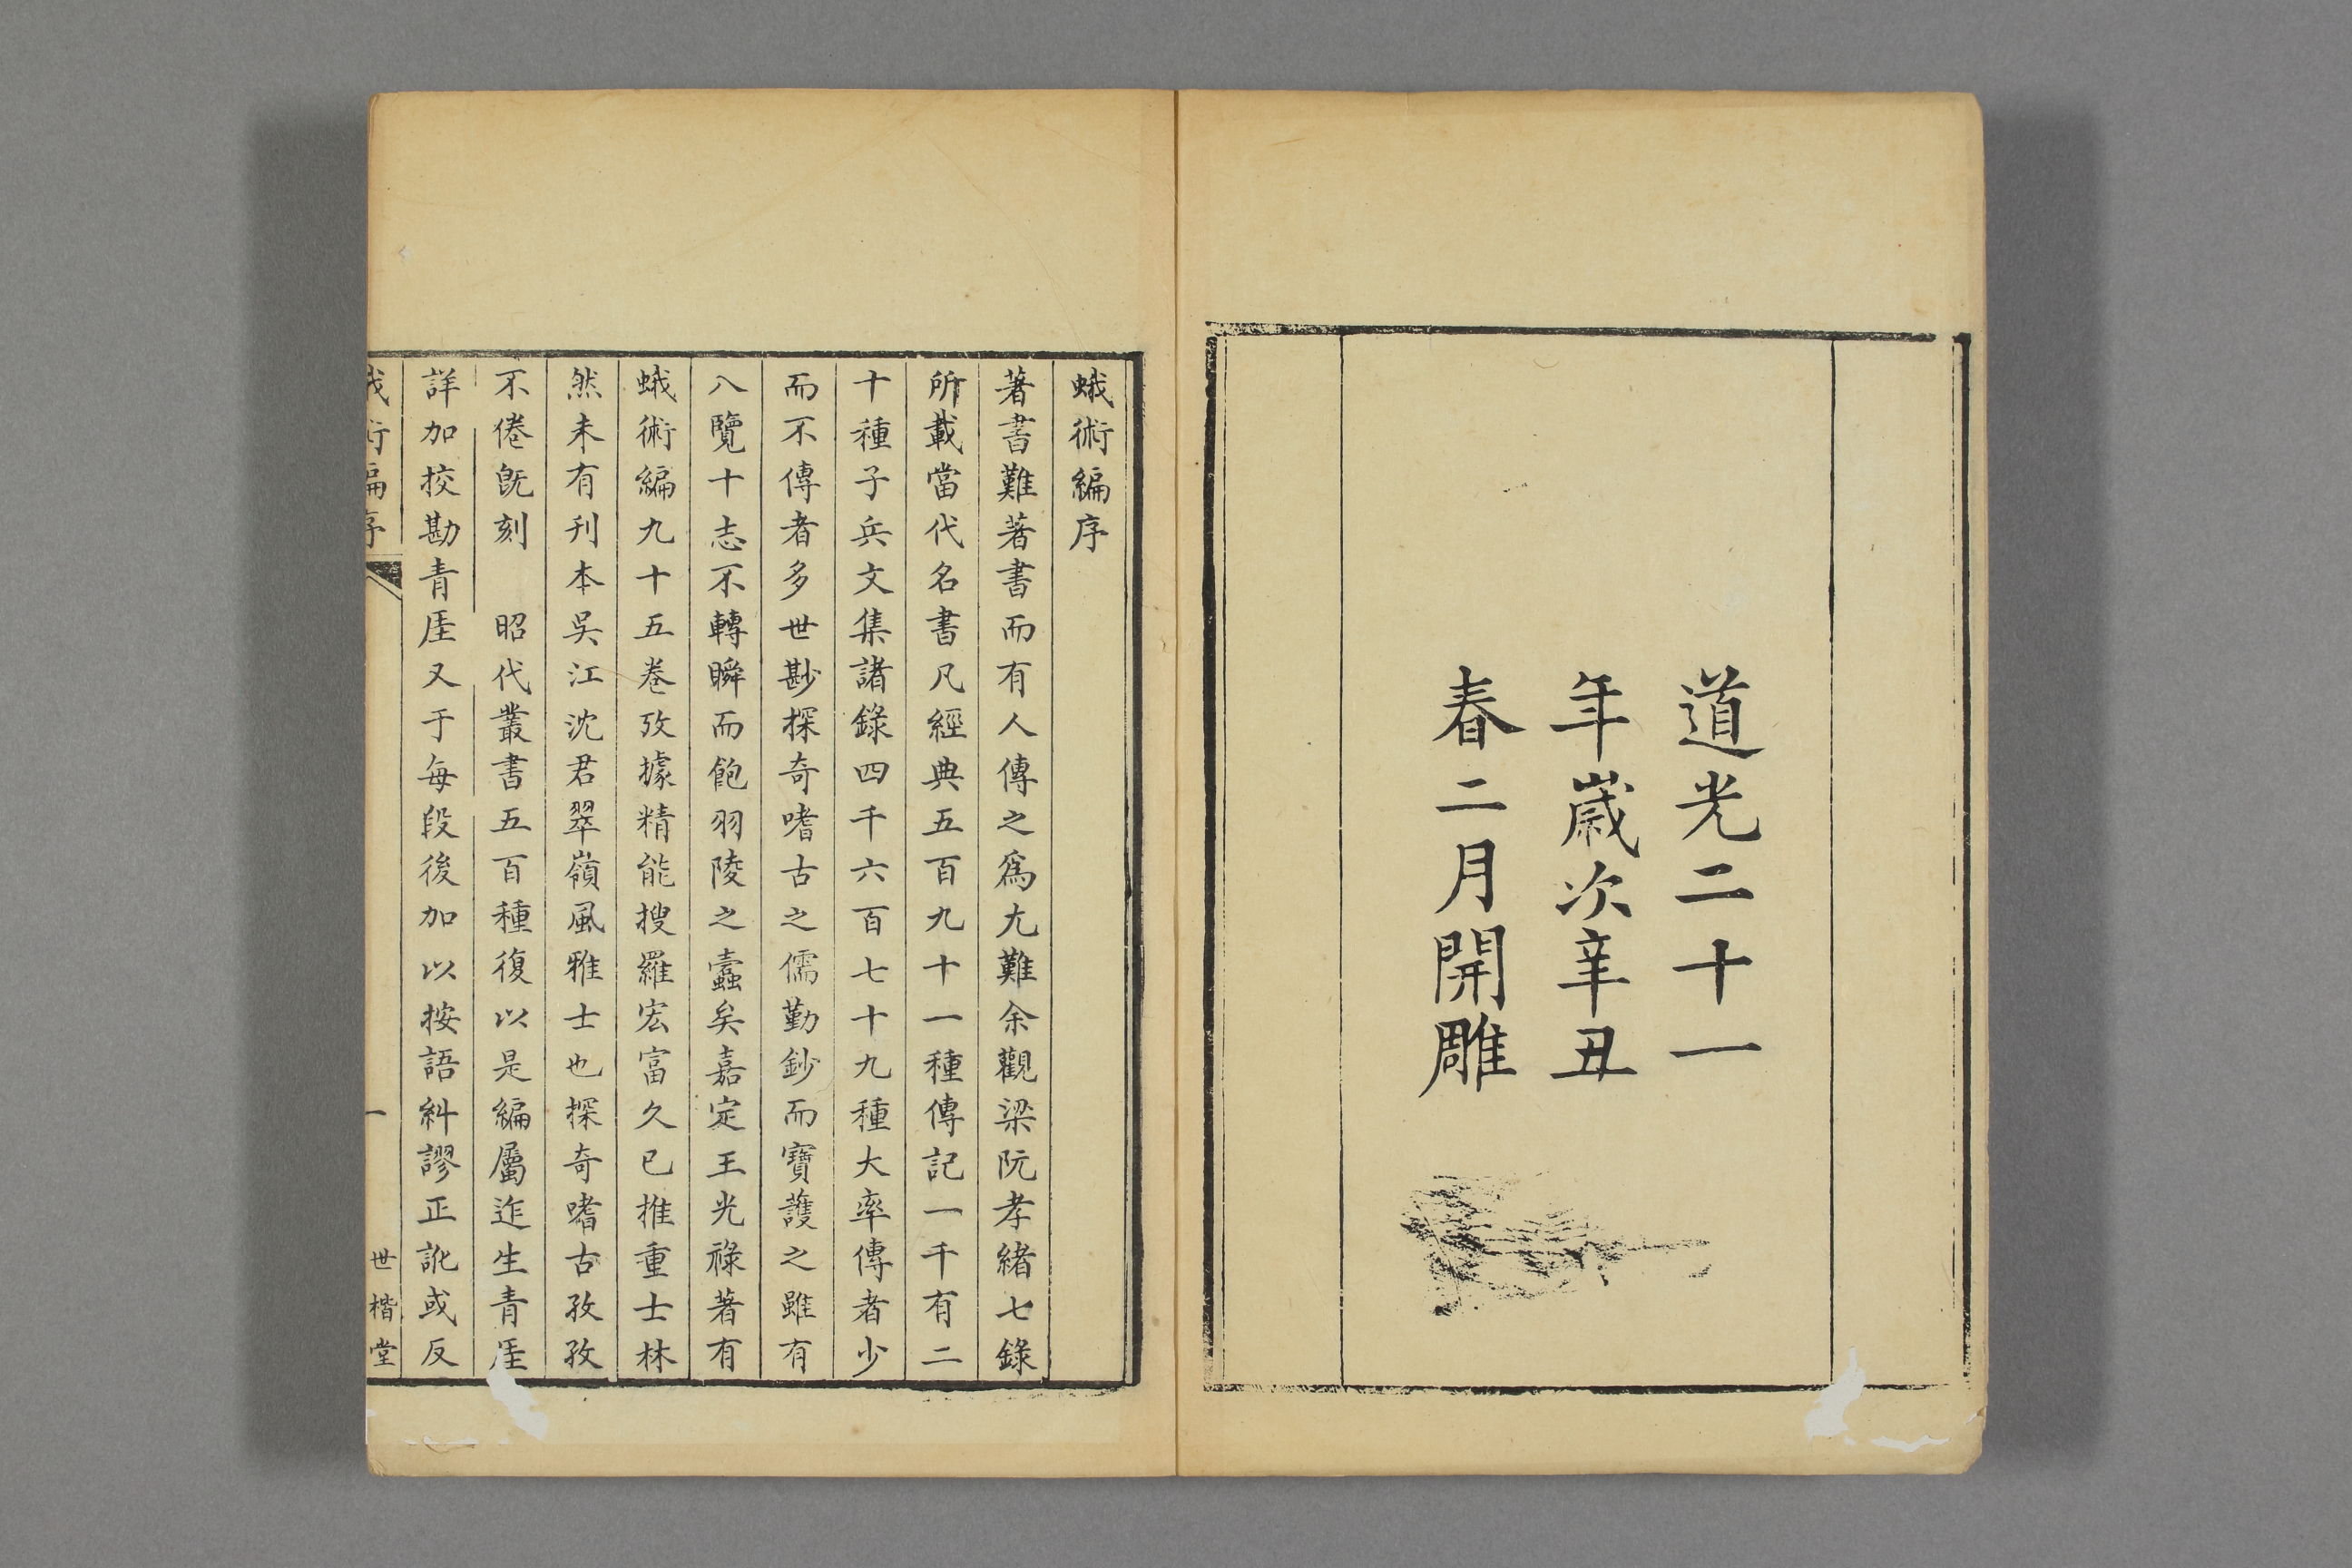 道光二十一
年歲次辛丑
春二月開雕
蛾術編序
著書難著書而有人傳之爲尤難余觀梁阮孝緒七錄
所載當代名書凡經典五百九十一種傳記一千有二
十種子兵文集諸錄四千六百七十九種大率傳者少
而不傳者多世尠探奇嗜古之儒勤鈔而寶護之雖有
八覽十志不轉瞬而飽羽陵之蠹矣嘉定王光祿著有
蛾術編九十五卷攷據精能搜羅宏富久已推重士林
然未有刊本吳江沈君翠嶺風雅士也探奇嗜古孜孜
不倦旣刻　昭代叢書五百種復以是編屬迮生青厓
詳加挍勘青厓又于每段後加以按語糾謬正訛或反
蛾術編序　一　世楷堂